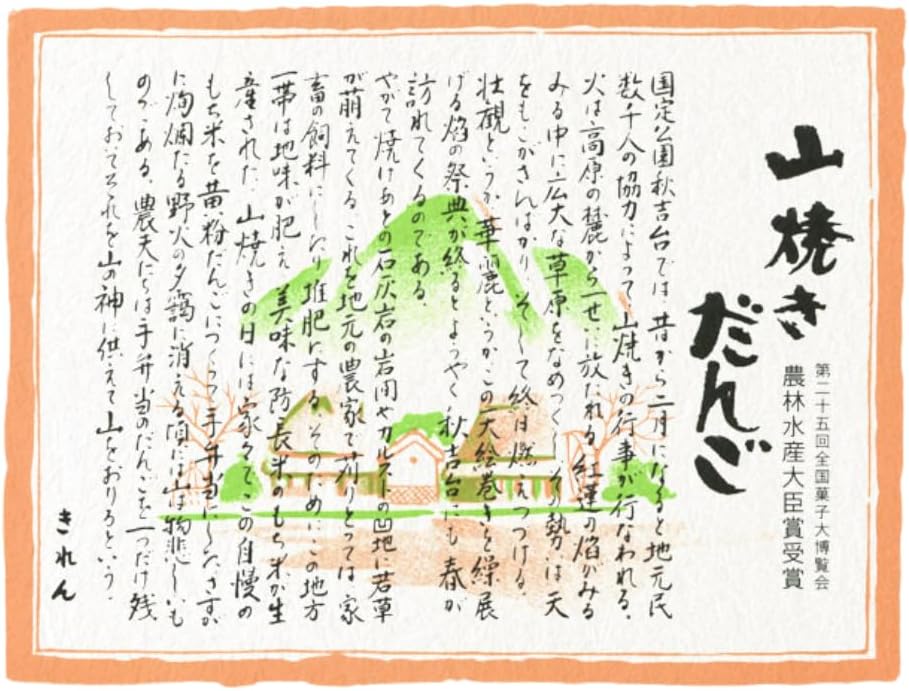 山焼き
だんご
第二十五回全国菓子大博覧会
農林水産大臣賞受賞
国定公園秋吉台では、昔から二月になると地元民
数千人の協力によって山焼きの行事が行なわれる。
火は高原の麓から一せいに放たれる紅蓮の焰がみる
みる中に広大な草原をなめつくしその勢は天
をもこがさんばかり、そして終日燃えつづける。
壮観というか華麗というかこの大絵巻きを繰展
げる焰の祭典が終るとようやく秋吉台にも春が
訪れてくるのである。
やがて焼けあとの石灰岩の岩間やカルストの凹地に若草
が萠えてくる。これを地元の農家で苅りとっては家
畜の飼料にしたり堆肥にする。そのためにこの地方
一帯は地味が肥え、美味な防長米のもち米が生
産された。山焼きの日には家々でこの自慢の
もち米を黄粉だんごにつくって手弁当にした。さすが
に絢爛たる野火の夕靄に消える頃には山は物悲しいも
のがある。農夫たちは手弁当のだんごを一つだけ残
しておいてそれを山の神に供えて山をおりるという。
きれん